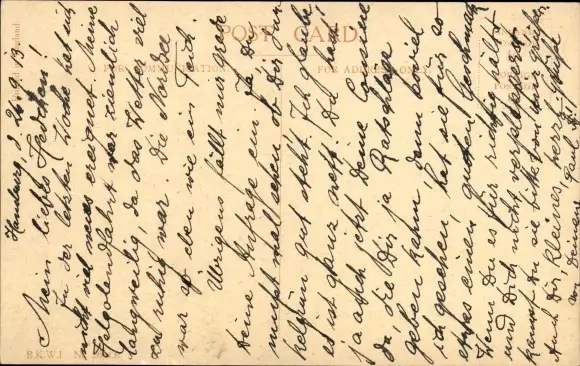 POST CARD
FOR COMMUNICATION.
FOR ADDRESS ONLY.
B.K.W.I
Hamburg, d. 26.9.13.
Mein liebes
In der letzten Woche hat sich
nicht viel neues ereignet. Meine
Helgolandfahrt war ziemlich
langweilig, da das Wetter viel
zu ruhig war. Die Nordsee
war so eben wie ein Teich.
Übrigens fällt mir grade
Deine Anfrage ein. Ja, Du
mußt mal sehen ob Dir
hellgrün gut steht. Ich glaube
es ist ganz nett. Du hast
ja auch jetzt Deine Cousine
da, die Dir ja Ratschläge
geben kann, denn soviel
ich gesehen, hat sie für so
etwas einen guten Geschmack
Wenn Du es für richtig hältst
und Dich nicht verplapperst
kannst Du sie bitte von mir grüßen.
Auch Dir, Kleines, herzl. Grüße
von Deinem Paul